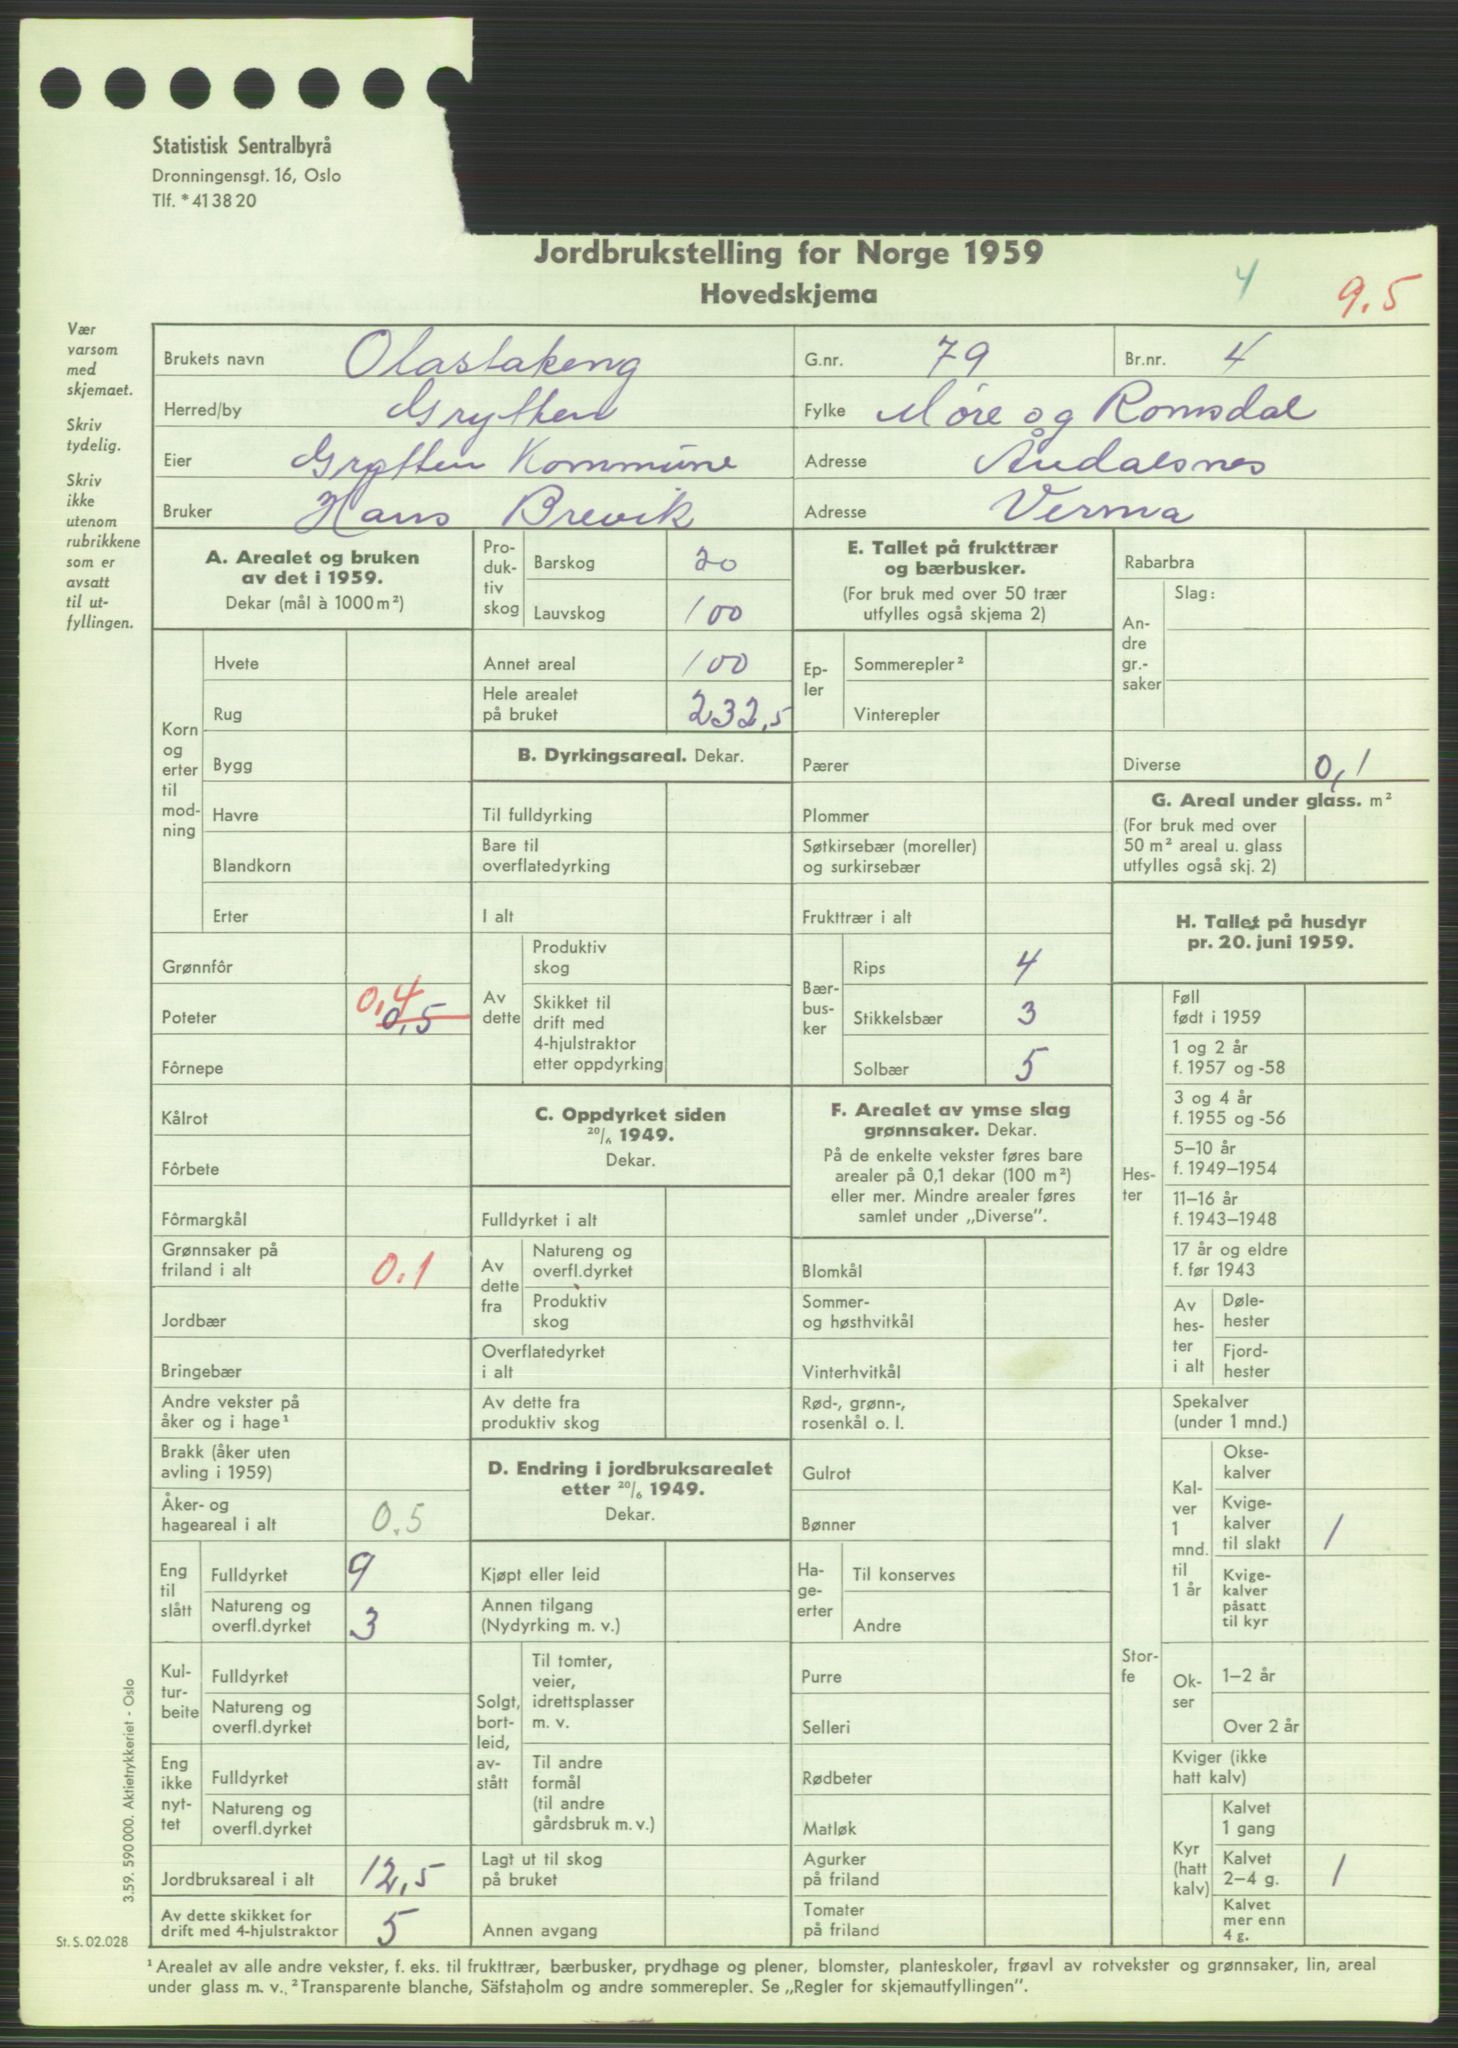 Statistisk Sentralbyrå
Dronningensgt. 16, Oslo
Tlf. * 41 38 20
Jordbrukstelling for Norge 1959
Hovedskjema
4
9.5
Vær
varsom
med
skjemaet.
Skriv
tydelig.
Skriv
ikke
utenom
rubrikkene
som er
avsatt
til ut-
fyllingen.
Brukets navn Olastakeng G.nr. 79 Br.nr. 4
Herred/by Grytten Fylke Møre og Romsdal
Eier Grytten Kommune Adresse Åndalsnes
Bruker Hans Brevik Adresse Verma
A. Arealet og bruken
av det i 1959.
Dekar (mål à 1000 m²)
Korn
og
erter
til
mod-
ning
Hvete
Rug
Bygg
Havre
Blandkorn
Erter
Grønnfôr
Poteter 0,4 0,5
Fôrnepe
Kålrot
Fôrbete
Fôrmargkål
Grønnsaker på
friland i alt 0.1
Jordbær
Bringebær
Andre vekster på
åker og i hage¹
Brakk (åker uten
avling i 1959)
Åker- og
hageareal i alt 0.5
Eng
til
slått
Fulldyrket 9
Natureng og
overfl.dyrket 3
Kul-
tur-
beite
Fulldyrket
Natureng og
overfl.dyrket
Eng
ikke
nyt-
tet
Fulldyrket
Natureng og
overfl.dyrket
Jordbruksareal i alt 12,5
Av dette skikket for
drift med 4-hjulstraktor 5
Pro-
duk-
tiv
skog
Barskog 20
Lauvskog 100
Annet areal 100
Hele arealet
på bruket 232,5
B. Dyrkingsareal. Dekar.
Til fulldyrking
Bare til
overflatedyrking
I alt
Av
dette
Produktiv
skog
Skikket til
drift med
4-hjulstraktor
etter oppdyrking
C. Oppdyrket siden
20/6 1949.
Dekar.
Fulldyrket i alt
Av
dette
fra
Natureng og
overfl.dyrket
Produktiv
skog
Overflatedyrket
i alt
Av dette fra
produktiv skog
D. Endring i jordbruksarealet
etter 20/6 1949.
Dekar.
Kjøpt eller leid
Annen tilgang
(Nydyrking m. v.)
Solgt,
bort-
leid,
av-
stått
Til tomter,
veier,
idrettsplasser
m. v.
Til andre
formål
(til andre
gårdsbruk m. v.)
Lagt ut til skog
på bruket
Annen avgang
E. Tallet på frukttrær
og bærbusker.
(For bruk med over 50 trær
utfylles også skjema 2)
Ep-
ler
Sommerepler²
Vinterepler
Pærer
Plommer
Søtkirsebær (moreller)
og surkirsebær
Frukttrær i alt
Bær-
bus-
ker
Rips 4
Stikkelsbær 3
Solbær 5
F. Arealet av ymse slag
grønnsaker. Dekar.
På de enkelte vekster føres bare
arealer på 0,1 dekar (100 m²)
eller mer. Mindre arealer føres
samlet under „Diverse".
Blomkål
Sommer-
og høsthvitkål
Vinterhvitkål
Rød-, grønn-,
rosenkål o. l.
Gulrot
Bønner
Ha-
ge-
erter
Til konserves
Andre
Purre
Selleri
Rødbeter
Matløk
Agurker
på friland
Tomater
på friland
Rabarbra
An-
dre
gr.-
saker
Slag:
Diverse 0,1
G. Areal under glass. m²
(For bruk med over
50 m² areal u. glass
utfylles også skj. 2)
H. Tallet på husdyr
pr. 20. juni 1959.
Hes-
ter
Føll
født i 1959
1 og 2 år
f. 1957 og -58
3 og 4 år
f. 1955 og -56
5–10 år
f. 1949–1954
11–16 år
f. 1943–1948
17 år og eldre
f. før 1943
Av
hes-
ter
i alt
Døle-
hester
Fjord-
hester
Stor-
fe
Spekalver
(under 1 mnd.)
Kal-
ver
1
mnd.
til
1 år
Okse-
kalver
Kvige-
kalver
til slakt 1
Kvige-
kalver
påsatt
til kyr
Ok-
ser
1–2 år
Over 2 år
Kviger (ikke
hatt kalv)
Kyr
(hatt
kalv)
Kalvet
1 gang
Kalvet
2–4 g. 1
Kalvet
mer enn
4 g.
3.59. 590 000. Aktietrykkeriet - Oslo
St. S. 02.028
¹ Arealet av alle andre vekster, f. eks. til frukttrær, bærbusker, prydhage og plener, blomster, planteskoler, frøavl av rotvekster og grønnsaker, lin, areal
under glass m. v. ² Transparente blanche, Säfstaholm og andre sommerepler. Se „Regler for skjemautfyllingen".